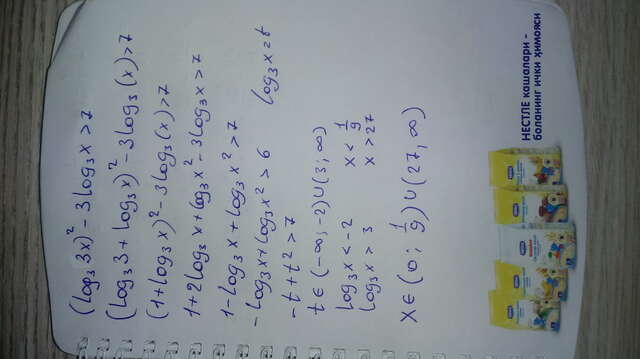 (log₃3x)² - 3log₃x > 7
(log₃3 + log₃x)² - 3log₃(x) > 7
(1 + log₃x)² - 3log₃(x) > 7
1 + 2log₃x + log₃x² - 3log₃x > 7
1 - log₃x + log₃x² > 7
- log₃x + log₃x² > 6 log₃x = t
- t + t² > 7
t ∈ (-∞; -2) ∪ (3; ∞)
log₃x < -2 x < 1/9
log₃x > 3 x > 27
X ∈ (0; 1/9) ∪ (27, ∞)
НЕСТЛЕ кашалари –
боланинг ички ҳимояси